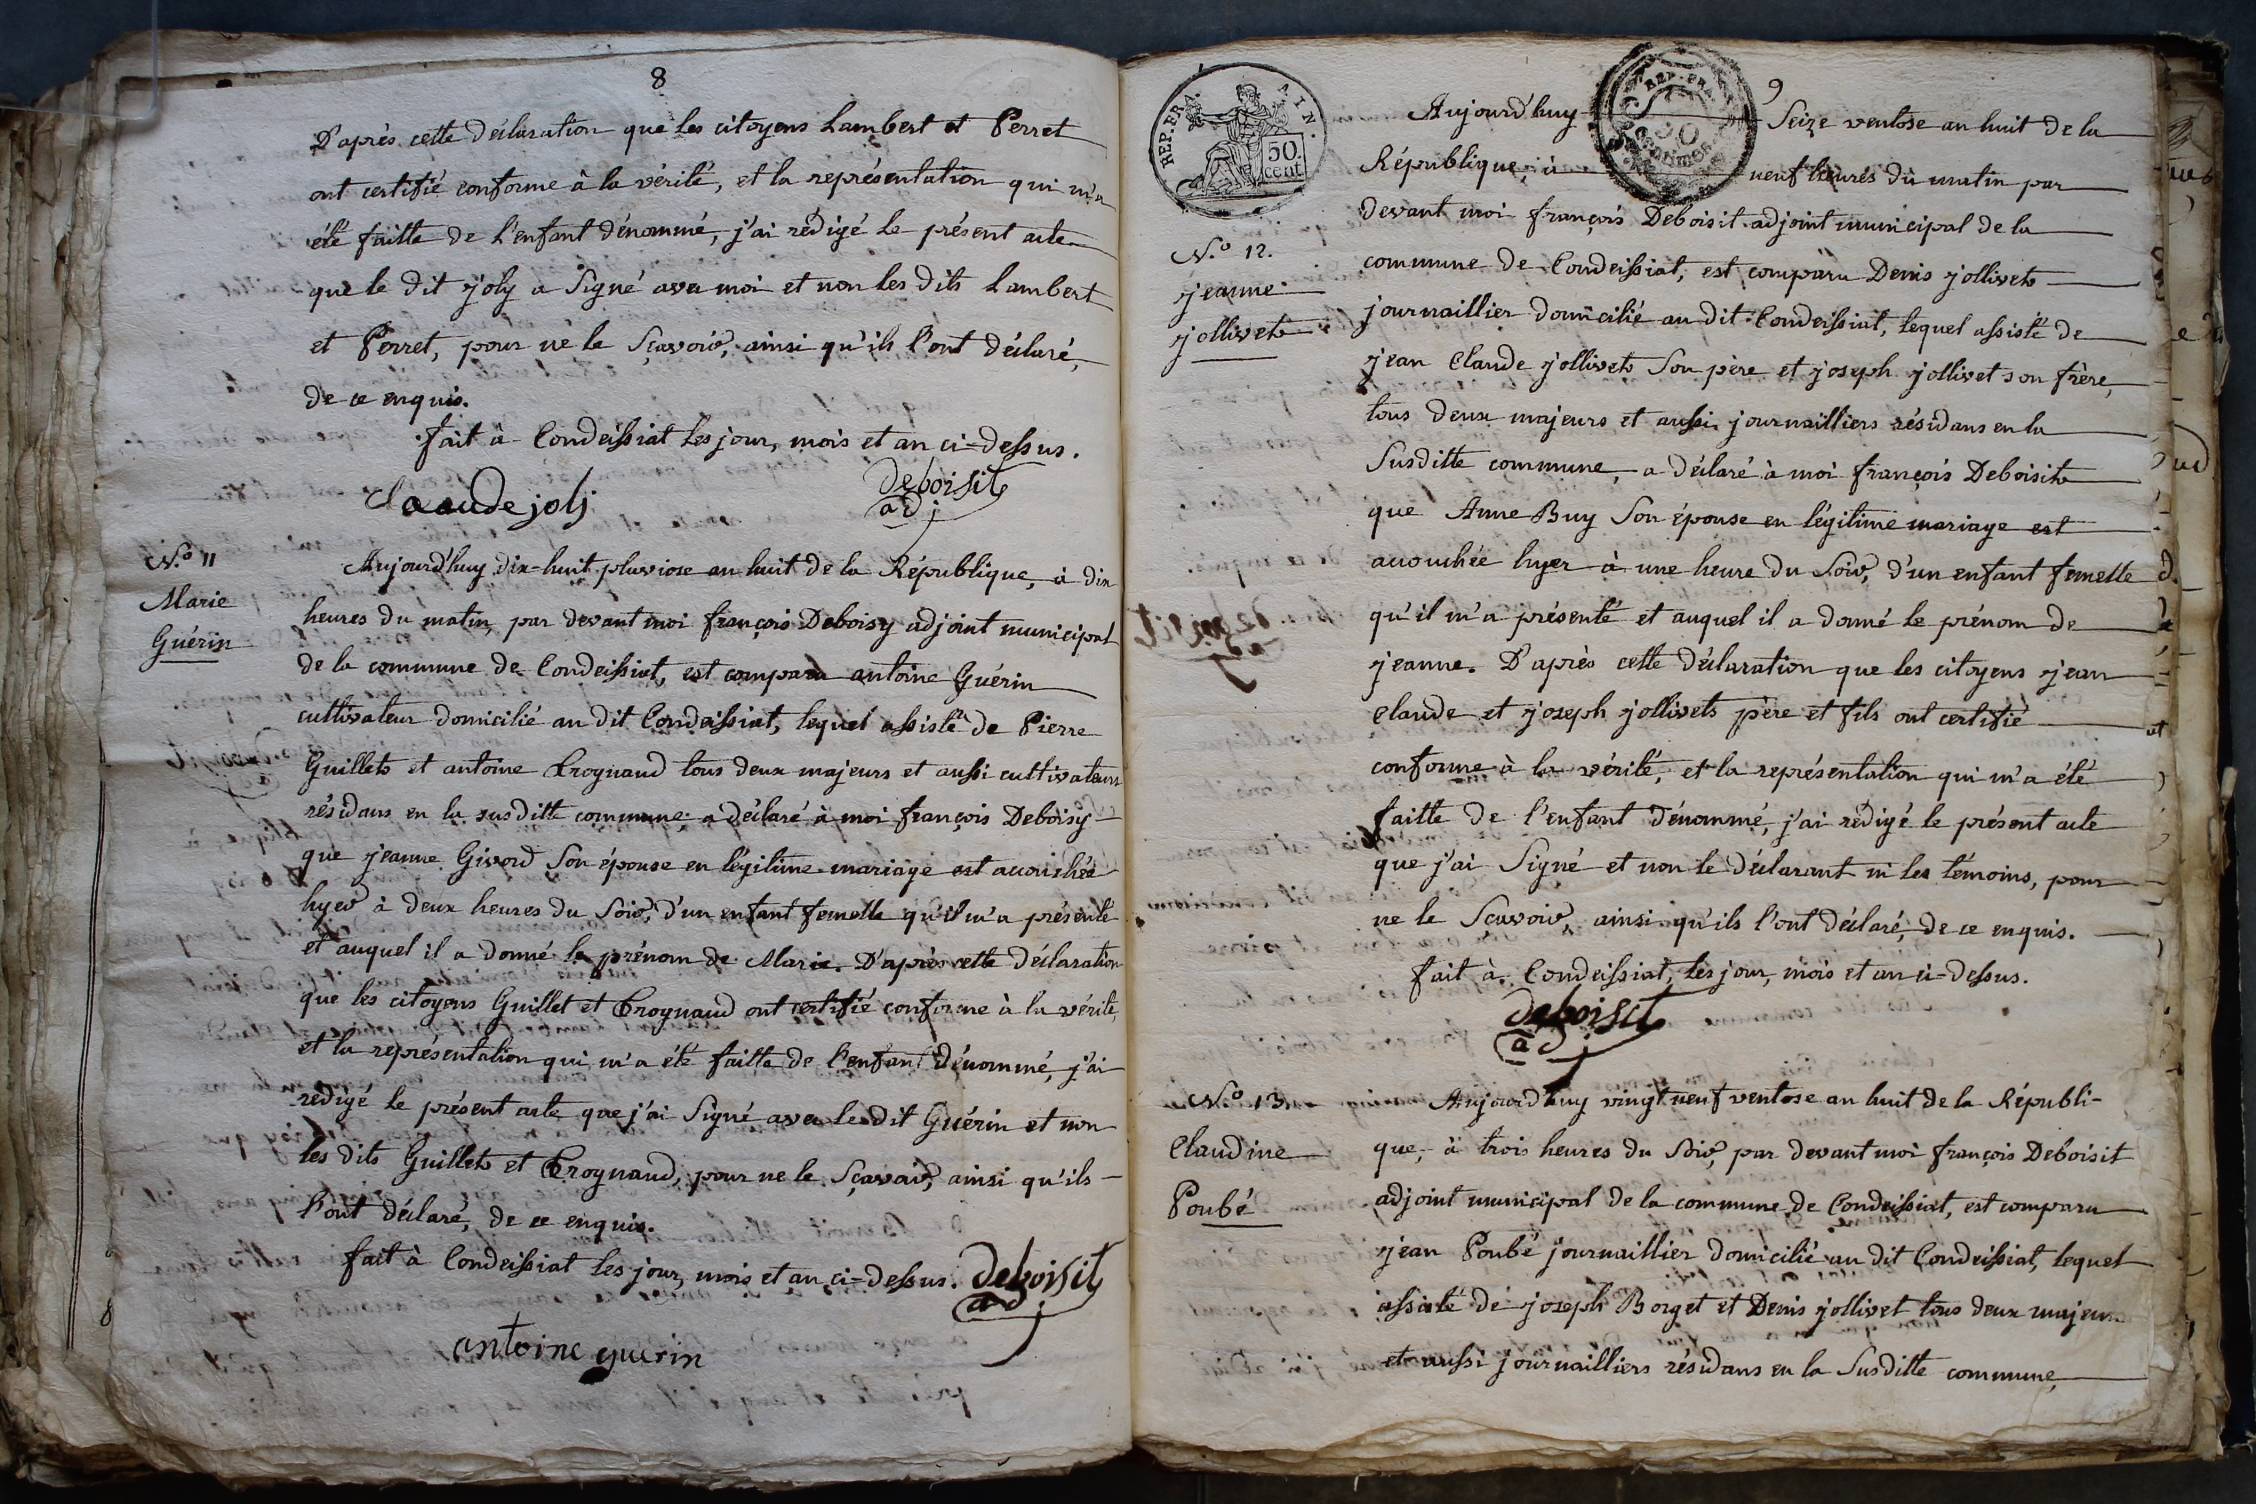 8
D'après cette déclaration que les citoyens Lambert et Perret
ont certifié conforme à la vérité, et la représentation qui m'a
été faitte de l'enfant dénommé, j'ai rédigé le présent acte
que le dit joly a Signé avec moi et non les dits Lambert
et Perret, pour ne le Sçavoir, ainsi qu'ils l'ont déclaré,
de ce enquis.
fait à Condeissiat les jour, mois et an ci-dessus.
claaude joly
deboisit
adj
N.o 11
Marie
Guérin
Aujourd'huy dix-huit pluviose an huit de la République, à dix
heures du matin, par devant moi françois Deboisy adjoint municipal
de la commune de Condeissiat, est comparu antoine Guérin
cultivateur domicilié au dit Condeissiat, lequel assisté de Pierre
Guillet et antoine Crognaud tous deux majeurs et aussi cultivateurs
résidans en la susditte commune a déclaré à moi françois Deboisy
que jeanne Givord Son épouse en légitime mariage est accouchée
hyer à deux heures du Soir, d'un enfant femelle qu'il m'a présenté
et auquel il a donné le prénom de Marie. D'après cette déclaration
que les citoyens Guillet et Crognaud ont certifié conforme à la vérité,
et la représentation qui m'a été faitte de l'enfant dénommé, j'ai
redigé le présent acte que j'ai Signé avec le dit Guérin et non
les dits Guillet et Crognaud, pour ne le Sçavoir, ainsi qu'ils
l'ont déclaré, de ce enquis.
fait à Condeissiat les jour, mois et an ci-dessus.
deboisit
adj
antoine guerin
8
9
REP. FRA.
AIN.
50.
cent.
REP. FRA.
50
centimes
Aujourd'huy Seize ventose an huit de la
République, à neuf heures du matin par
devant moi françois Deboisit adjoint municipal de la
commune de Condeissiat, est comparu Denis jollivet
journaillier domicilié au dit Condeissiat, lequel assisté de
jean Claude jollivet Son père et joseph jollivet son frère,
tous deux majeurs et aussi journailliers résidans en la
Susditte commune, a déclaré à moi françois Deboisit
que Anne Buy Son épouse en légitime mariage est
accouchée hyer à une heure du Soir, d'un enfant femelle
qu'il m'a présenté et auquel il a donné le prénom de
jeanne. D'après cette déclaration que les citoyens jean
Claude et joseph jollivets père et fils ont certifié
conforme à la vérité, et la représentation qui m'a été
faitte de l'enfant dénommé, j'ai redigé le présent acte
que j'ai Signé et non le déclarant ni les témoins, pour
ne le Sçavoir, ainsi qu'ils l'ont déclaré, de ce enquis.
fait à Condeissiat, les jour, mois et an ci-dessus.
N.o 12.
jeanne
jollivet
deboisit
adj
N.o 13
Claudine
Poubé
Aujourd'huy vingt neuf ventose an huit de la Républi-
que, à trois heures du Soir, par devant moi françois Deboisit
adjoint municipal de la commune de Condeissiat, est comparu
jean Poubé journaillier domicilié au dit Condeissiat, lequel
assisté de joseph Borget et Denis jollivet tous deux majeurs
et aussi journailliers résidans en la Susditte commune,